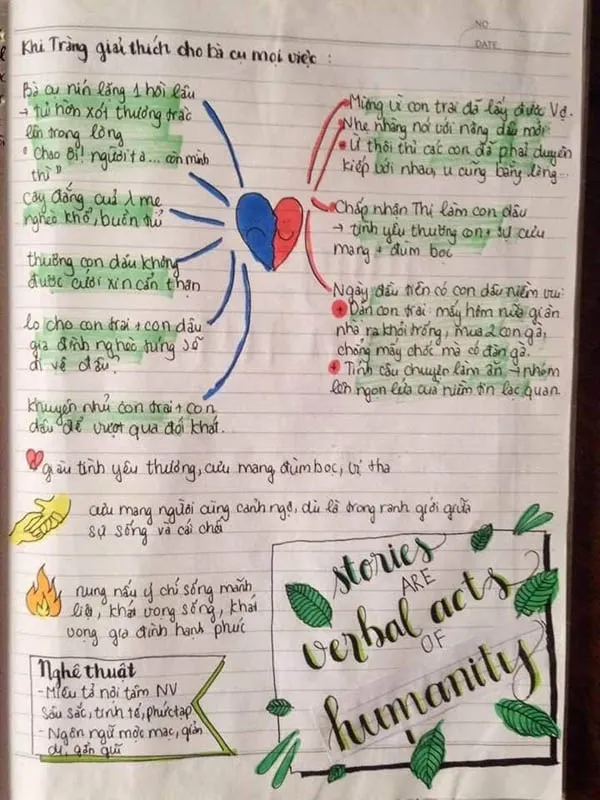 NO
DATE
Khi Tràng giải thích cho bà cụ mọi việc :
Bà cụ nín lặng 1 hồi lâu
→ tủi hờn xót thương trào
lên trong lòng
"Chao ôi! người ta... còn mình
thì"
Cay đắng của 1 mẹ
nghèo khổ, buồn tủi
thương con dâu không
được cưới xin cẩn thận
lo cho con trai + con dâu
gia đình nghèo túng sẽ
đi về đâu.
khuyên nhủ con trai + con
dâu để vượt qua đói khát.
Mừng vì con trai đã lấy được Vợ.
Nhẹ nhàng nói với nàng dâu mới
Ừ thôi thì các con đã phải duyên
kiếp với nhau, u cũng bằng lòng...
Chấp nhận Thị làm con dâu
→ tình yêu thương con + sự cưu
mang + đùm bọc
Ngày đầu tiên có con dâu niềm vui:
+ Dặn con trai: mấy hôm nữa gì ăn
nhà ra khỏi trống, mua 2 con gà,
chẳng mấy chốc mà có đàn gà.
+ Tính câu chuyện làm ăn → nhóm
lên ngọn lửa của niềm tin lạc quan.
giàu tình yêu thương, cưu mang đùm bọc, vị tha
cưu mang người cùng cảnh ngộ, dù là trong ranh giới giữa
sự sống và cái chết
nung nấu ý chí sống mãnh
liệt, khát vọng sống, khát
vọng gia đình hạnh phúc
Nghệ thuật
- Miêu tả nội tâm NV
sâu sắc, tinh tế, phức tạp
- Ngôn ngữ mộc mạc, giản
dị, gần gũi
stories
ARE
verbal acts
OF
humanity